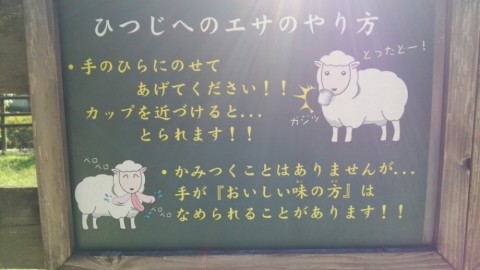 ひつじへのエサのやり方
・手のひらにのせて
あげてください！！
カップを近づけると...
とられます！！
とったとー！
ガジッ
・かみつくことはありませんが...
手が『おいしい味の方』は
なめられることがあります！！
ペロペロ
ペロペロ